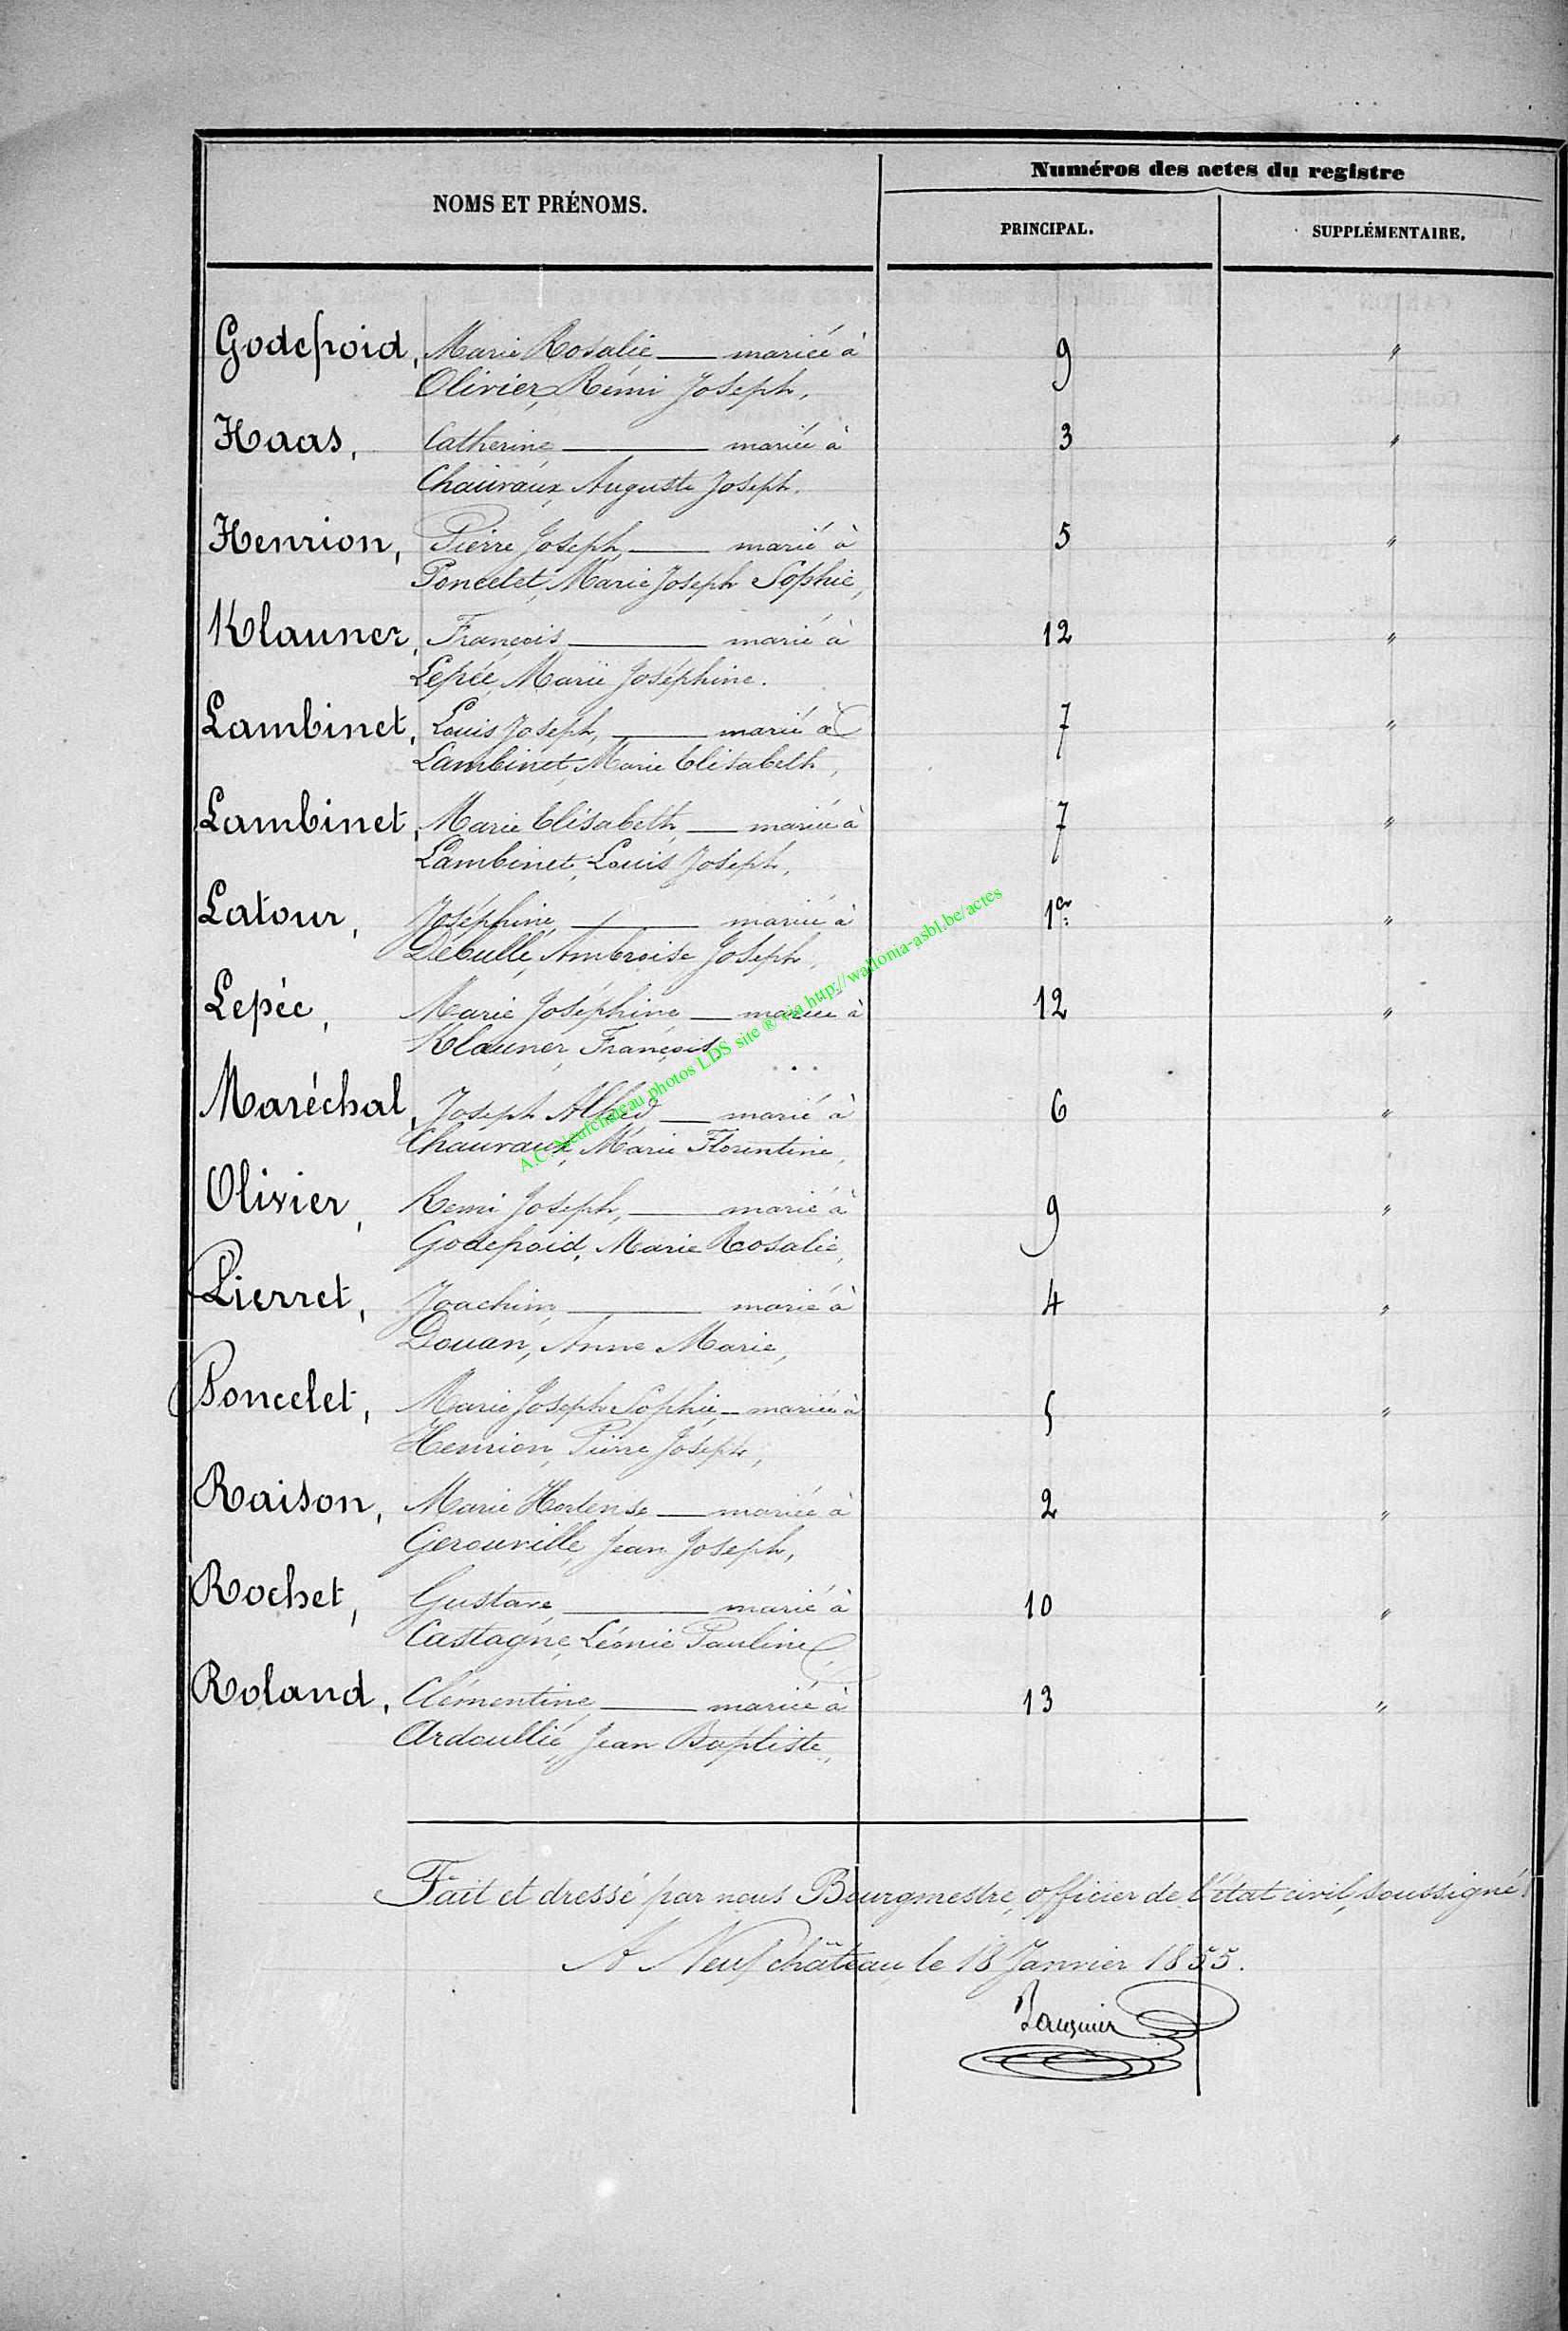 Numéros des actes du registre
NOMS ET PRÉNOMS.
PRINCIPAL. SUPPLÉMENTAIRE.
Godefroid, Marie Rosalie — mariée à 9 "
Olivier, Rémi Joseph,
Haas, Catherine — mariée à 3 "
Chauvaux, Auguste Joseph.
Henrion, Pierre Joseph, — marié à 5 "
Poncelet, Marie Joseph Sophie,
Klauner, François — marié à 12 "
Lepée, Marie Joséphine.
Lambinet, Louis Joseph, — marié à 7 "
Lambinet, Marie Elisabeth,
Lambinet, Marie Elisabeth, — mariée à 7 "
Lambinet, Louis Joseph,
Latour, Joséphine, — mariée à 1er "
Debulle, Ambroise Joseph,
Lepée, Marie Joséphine — mariée à 12 "
Klauner, François,
Maréchal, Joseph Alfred — marié à 6 "
Chauvaux, Marie Florentine,
Olivier, Remi Joseph, — marié à 9 "
Godefroid, Marie Rosalie,
Pierret, Joachim, — marié à 4 "
Douan, Anne Marie,
Poncelet, Marie Joseph Sophie, — mariée à 5 "
Henrion, Pierre Joseph,
Raison, Marie Hortense — mariée à 2 "
Gerouville, Jean Joseph,
Rochet, Gustave, — marié à 10 "
Castagne, Léonie Pauline
Roland, Clémentine, — mariée à 13 "
Ardoullié, Jean Baptiste,
Fait et dressé par nous Bourgmestre, officier de l'état civil, soussigné
A Neufchâteau, le 18 Janvier 1855.
A.C. Neufchateau photos LDS site ® via http://wallonia-asbl.be/actes